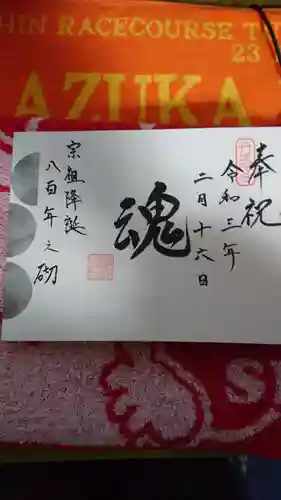 HIN RACECOURSE T
23
AZUKA
奉祝
令和三年
二月十六日
魂
宗祖降誕
八百年之砌